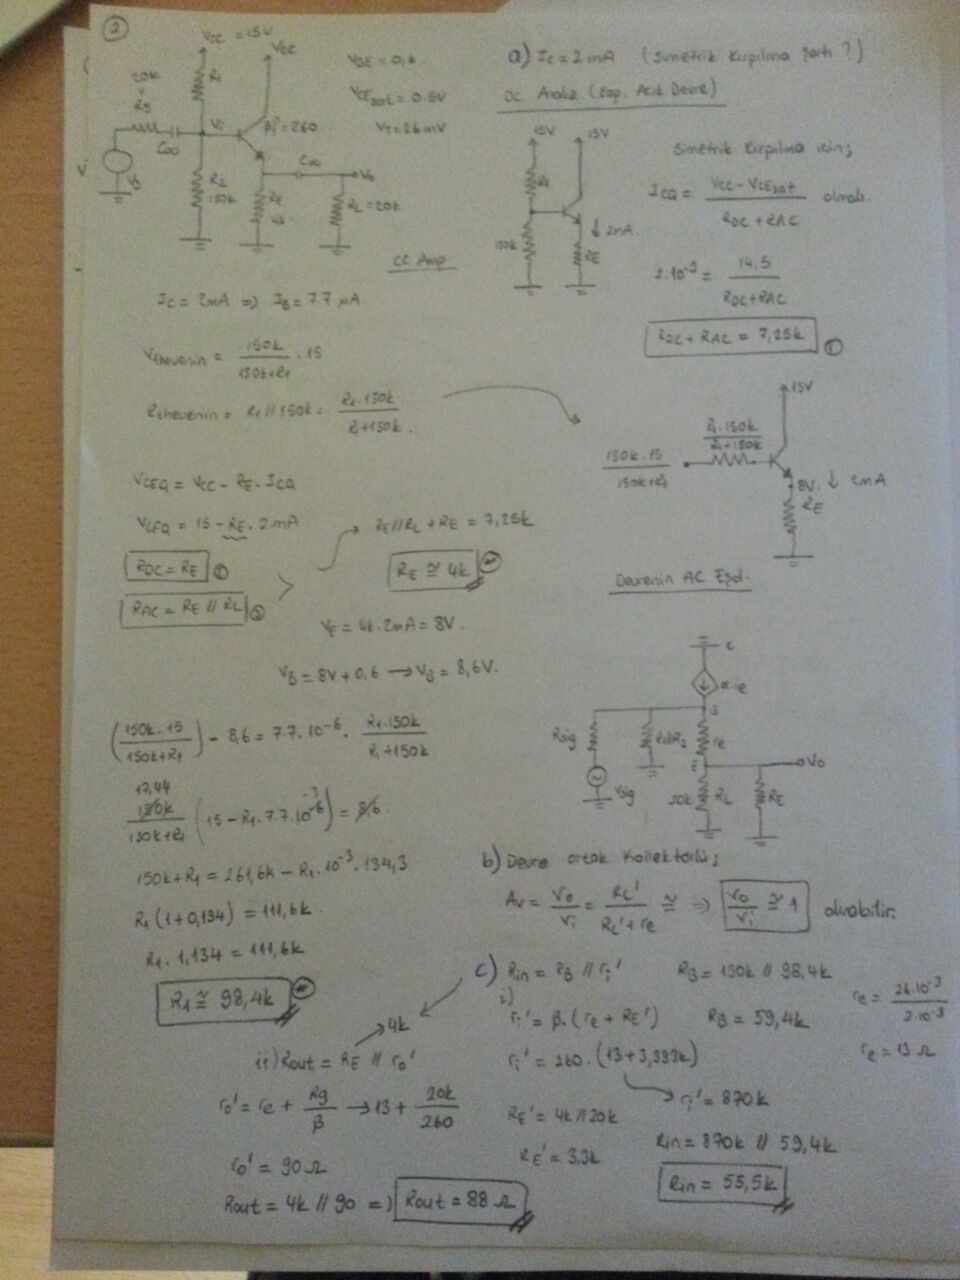 2
VCC = 15V
VCC
R1
20k
=
Rg
C∞
Vi
βf = 260
Vg
R2
150k
RE
C∞
Vo
RL = 20k
CC Amp
VBE = 0,6
VCEsat = 0.5V
VT = 26mV
a) Ic = 2mA (Simetrik Kırpılma Şartı ?)
DC Analiz (Kap. Açık Devre)
15V 15V
R1
150k
↓ 2mA
RE
Simetrik Kırpılma için;
ICQ = (VCC - VCEsat) / (RDC + RAC) olmalı.
2.10^-3 = 14,5 / (RDC + RAC)
RDC + RAC = 7,25k ①
Ic = 2mA => IB = 7.7 μA
Vthevenin = 150k / (150k+R1) . 15
Rthevenin = R1 // 150k = R1.150k / (R1+150k).
15V
150k.15 / (150k+R1)
R1.150k / (R1+150k)
8V. ↓ 2mA
RE
VCEQ = VCC - RE.ICQ
VCEQ = 15 - RE.2mA
RDC = RE
RAC = RE // RL ③
→ RE//RL + RE = 7,25k
RE ≅ 4k
VE = 4k.2mA = 8V.
VB = 8V + 0,6 → VB = 8,6V.
Devrenin AC Eşd.
C
α.ie
B
Rsig
R1//R2
re
E
Vo
Vsig
20k RL
RE
(150k.15 / (150k+R1)) - 8,6 = 7.7.10^-6 . R1.150k / (R1+150k)
17,44
150k / (150k+R1) (15 - R1.7.7.10^-6) = 8,6.
-3
150k+R1 = 261,6k - R1.10^-3.134,3
R1(1+0,134) = 111,6k.
R1.1,134 = 111,6k
R1 ≅ 98,4k
b) Devre ortak Kollektörlü;
Av = Vo/Vi = RL' / (RL'+re) ≅ => Vo/Vi ≅ 1 alınabilir.
c) Rin = RB // ri' RB = 150k // 98,4k
i)
ri' = β.(re + RE') RB = 59,4k
re = 26.10^-3 / 2.10^-3
re = 13 Ω
ri' = 260.(13+3,333k)
→ ri' = 870k
RE' = 4k//20k
RE' = 3.3k
Rin = 870k // 59,4k
Rin = 55,5k
4k
ii) Rout = RE // ro'
ro' = re + Rg/β → 13 + 20k/260
ro' = 90 Ω
Rout = 4k // 90 => Rout = 88 Ω